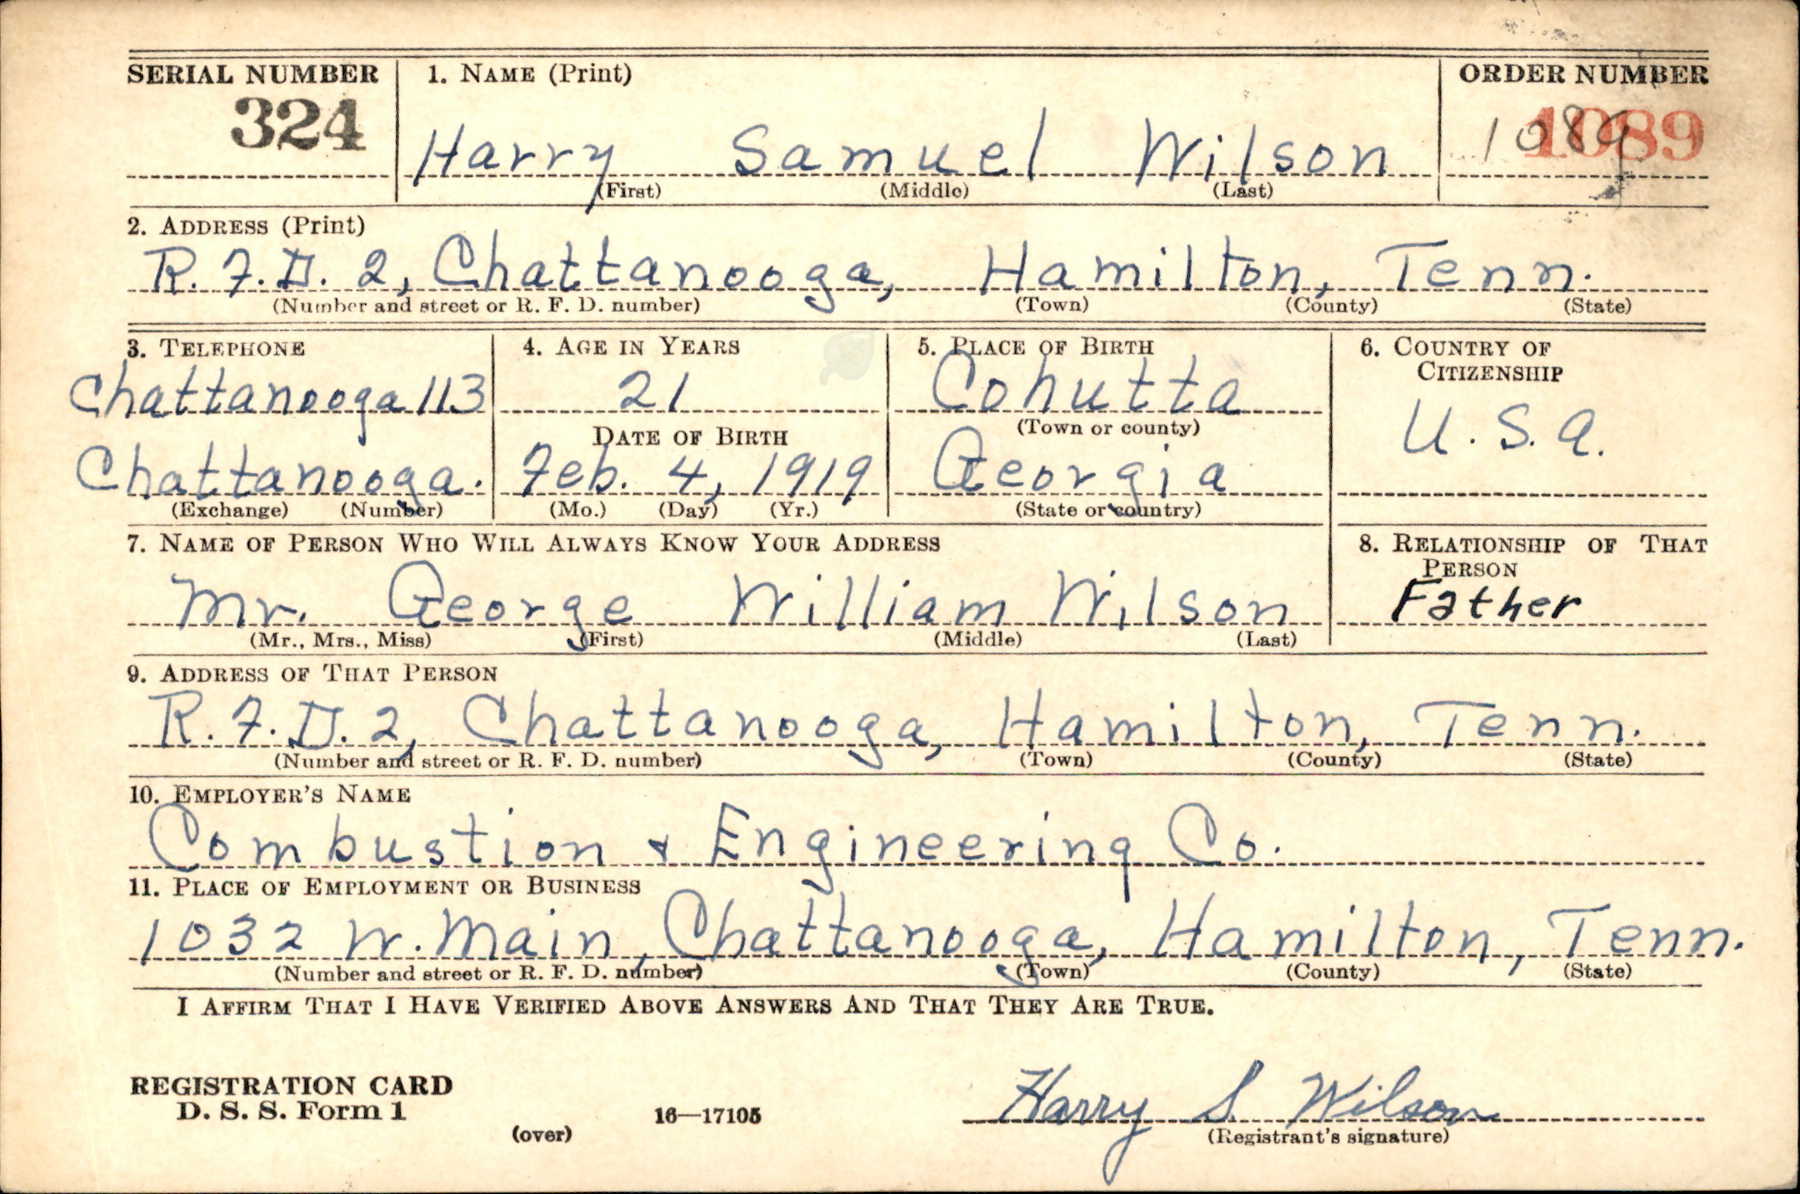 SERIAL NUMBER 1. NAME (Print) ORDER NUMBER
324 Harry Samuel Wilson 1089 1089
(First) (Middle) (Last)
2. ADDRESS (Print)
R.F.D. 2, Chattanooga, Hamilton, Tenn.
(Number and street or R. F. D. number) (Town) (County) (State)
3. TELEPHONE 4. AGE IN YEARS 5. PLACE OF BIRTH 6. COUNTRY OF
CITIZENSHIP
Chattanooga 113 21 Cohutta U.S.A.
DATE OF BIRTH (Town or county)
Chattanooga. Feb. 4, 1919 Georgia
(Exchange) (Number) (Mo.) (Day) (Yr.) (State or country)
7. NAME OF PERSON WHO WILL ALWAYS KNOW YOUR ADDRESS 8. RELATIONSHIP OF THAT
PERSON
Mr. George William Wilson Father
(Mr., Mrs., Miss) (First) (Middle) (Last)
9. ADDRESS OF THAT PERSON
R.F.D. 2, Chattanooga, Hamilton, Tenn.
(Number and street or R. F. D. number) (Town) (County) (State)
10. EMPLOYER'S NAME
Combustion & Engineering Co.
11. PLACE OF EMPLOYMENT OR BUSINESS
1032 W. Main, Chattanooga, Hamilton, Tenn.
(Number and street or R. F. D. number) (Town) (County) (State)
I AFFIRM THAT I HAVE VERIFIED ABOVE ANSWERS AND THAT THEY ARE TRUE.
REGISTRATION CARD
D. S. S. Form 1 16—17105 Harry S. Wilson
(over) (Registrant's signature)